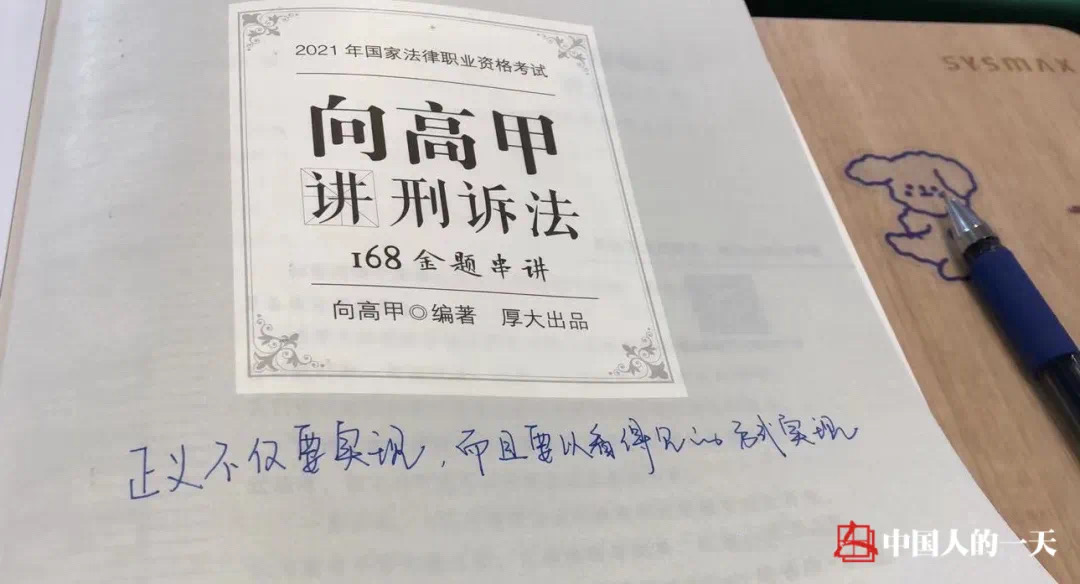 2021年国家法律职业资格考试
SYSMAX
向高甲
讲刑诉法
168金题串讲
向高甲◎编著 厚大出品
正义不仅要实现，而且要以看得见的方式实现
中国人的一天